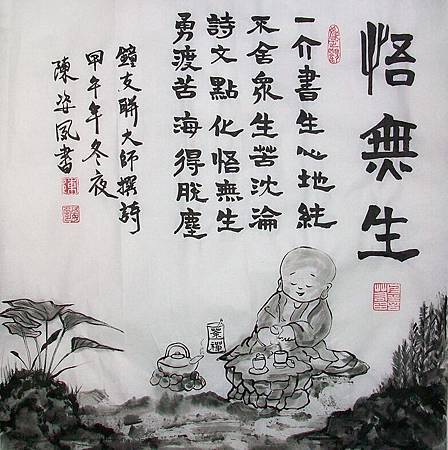 悟無生
一介書生心地純
不舍眾生苦沈淪
詩文點化悟無生
勇渡苦海得脫塵
鐘友聯大師撰詩
甲午年冬夜
陳姿鳳書
茶禪